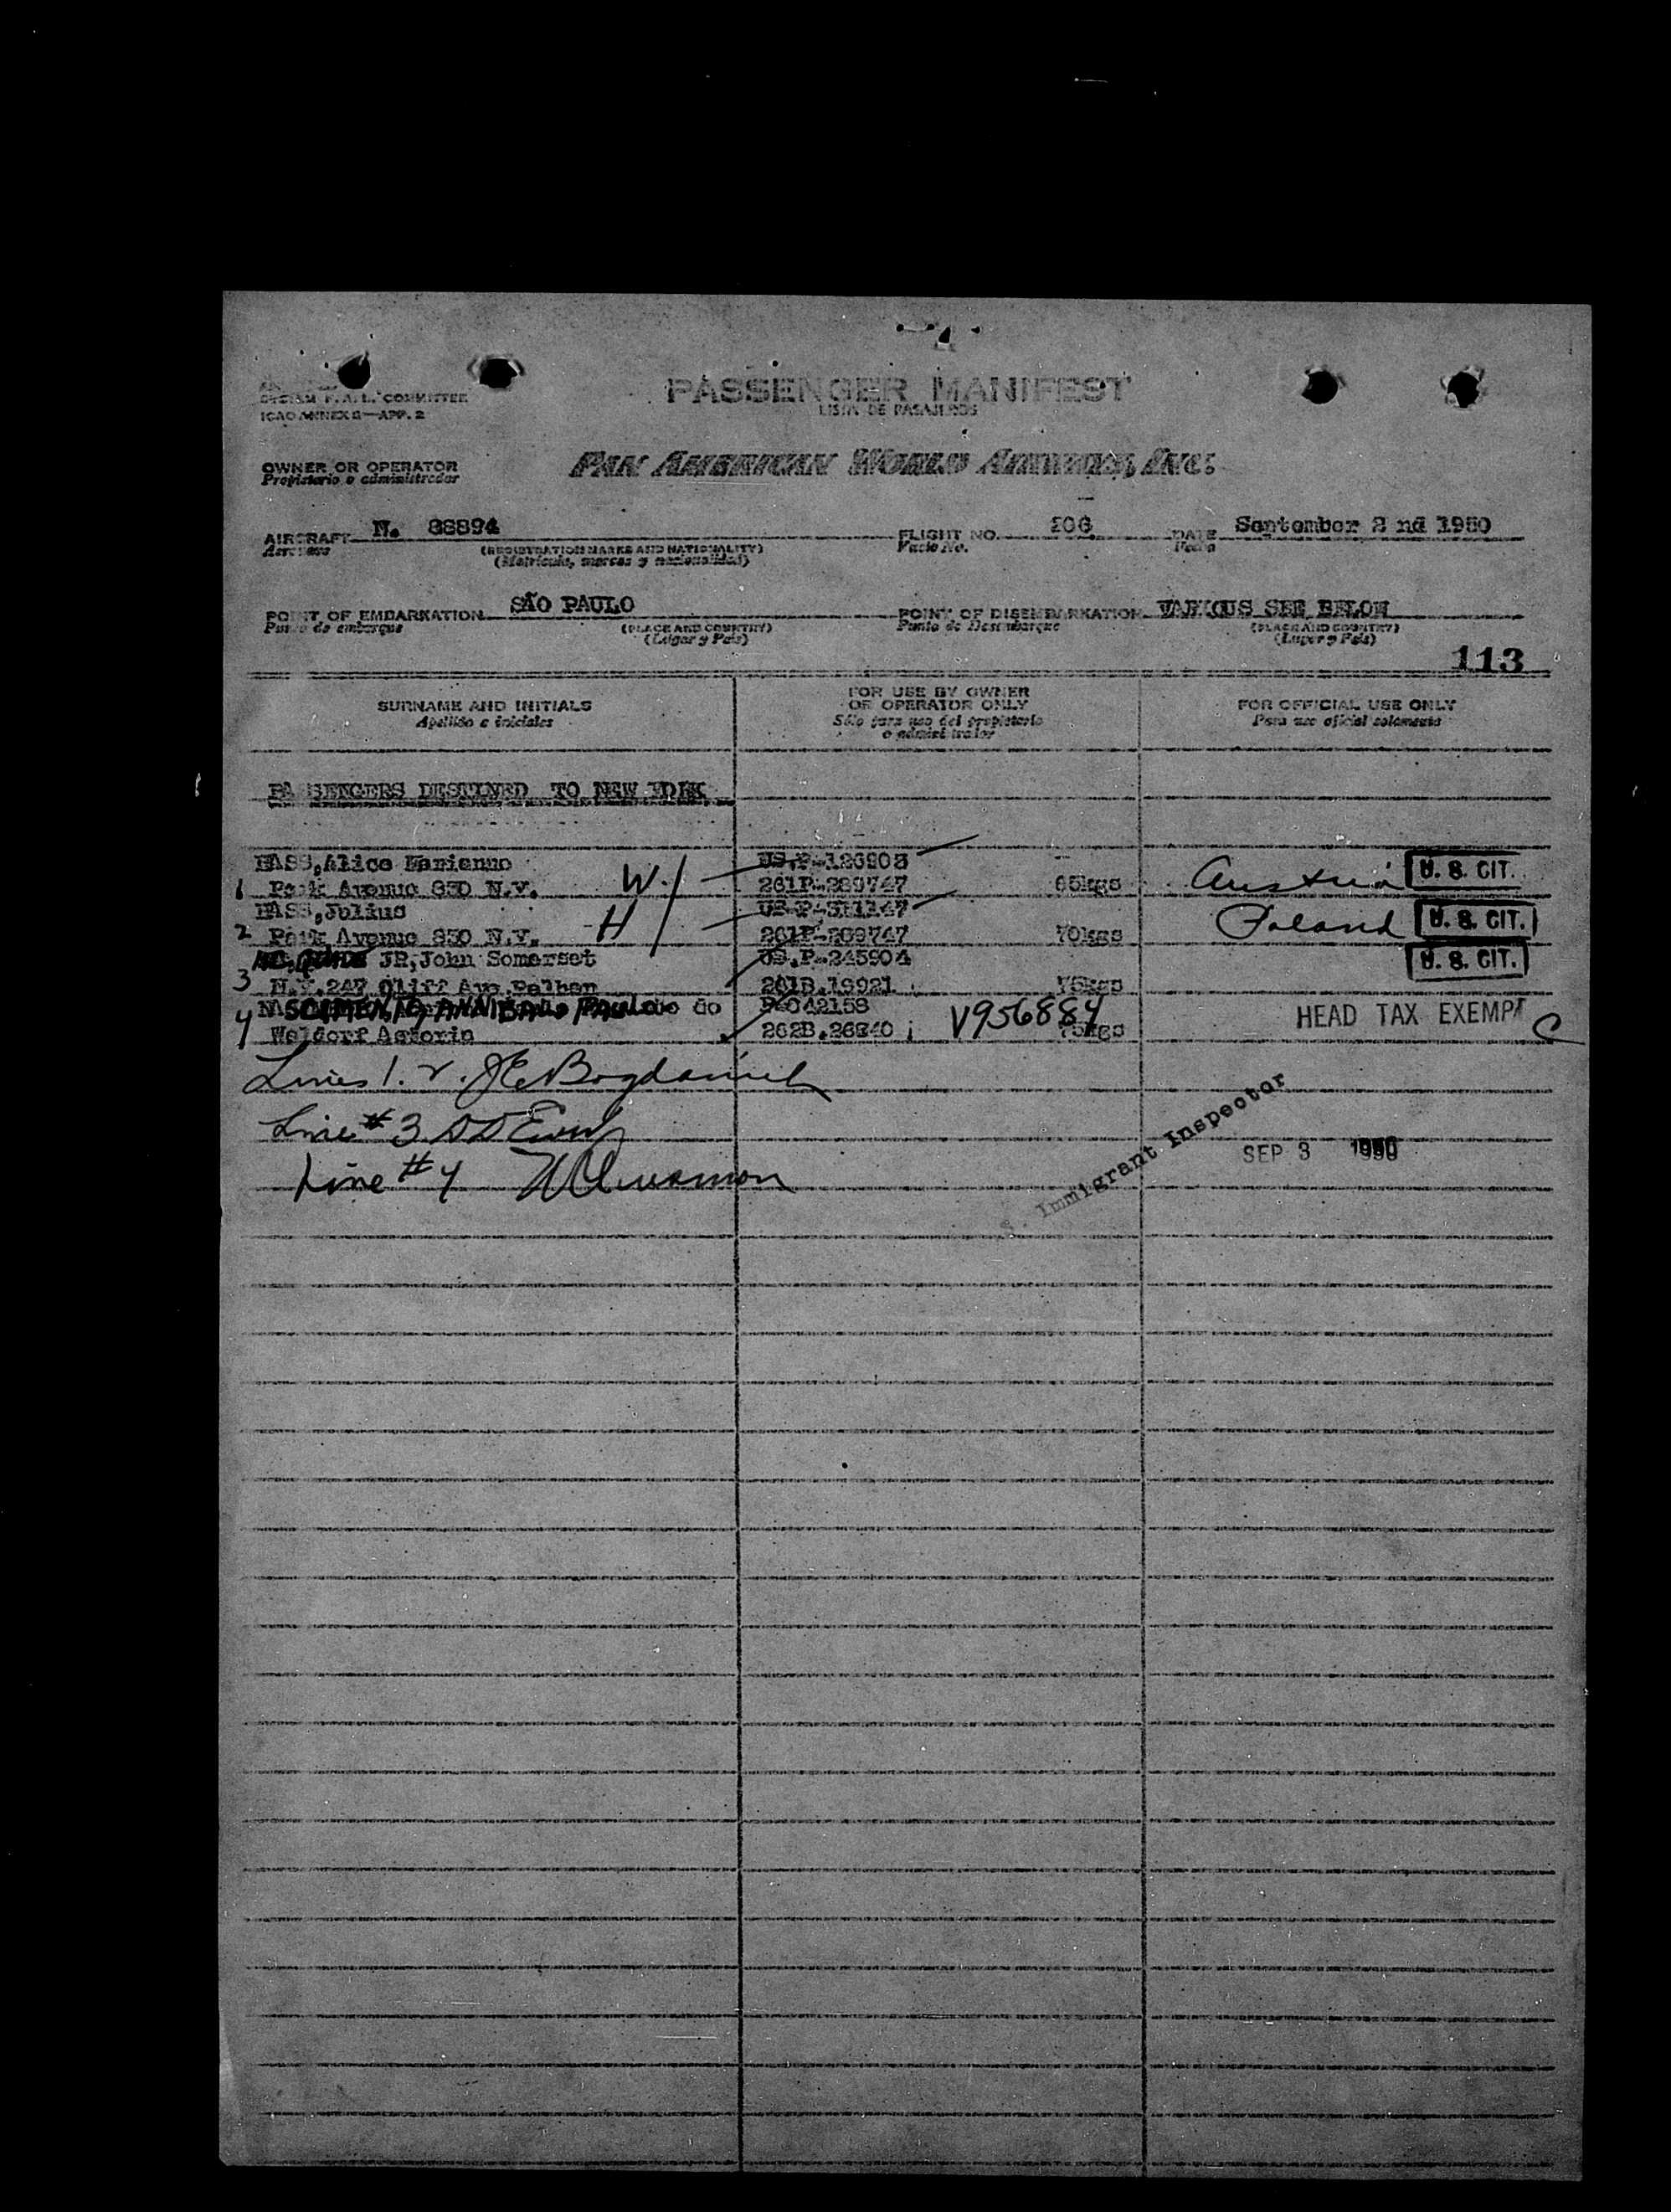 SYSTEM F.A.L. COMMITTEE
ICAO ANNEX 9—APP. 2
PASSENGER MANIFEST
LISTA DE PASAJEROS
OWNER OR OPERATOR
Propietario o administrador
PAN AMERICAN WORLD AIRWAYS, INC.
AIRCRAFT N. 88894 FLIGHT NO. 206 DATE September 2 nd 1950
Aeronave (REGISTRATION MARKS AND NATIONALITY) Vuelo No. Fecha
(Matrícula, marcas y nacionalidad)
POINT OF EMBARKATION SÃO PAULO POINT OF DISEMBARKATION VARIOUS SEE BELOW
Punto de embarque (PLACE AND COUNTRY) Punto de Desembarque (PLACE AND COUNTRY)
(Lugar y País) (Lugar y País)
113
SURNAME AND INITIALS
Apellido e iniciales
FOR USE BY OWNER
OR OPERATOR ONLY
Sólo para uso del propietario
o administrador
FOR OFFICIAL USE ONLY
Para uso oficial solamente
PASSENGERS DESTINED TO NEW YORK
Alice US.P-126908
1 Park Avenue 830 N.Y. W. 261P-289747 65kgs Austria U. S. CIT.
Julius
2 Park Avenue 830 N.Y. H 261P-289747 70kgs Poland U. S. CIT.
JR, John Somerset US.P-245904 U. S. CIT.
3 N.Y. 247 Cliff Ave Pelham 261B.19921 75kgs
NASCIMENTO, ANNIBAL PAULO do 042158 V956884 HEAD TAX EXEMPT C
4 Waldorf Astoria 262B.26840 75kgs
Lines 1. 2.
Line # 3
Line # 4
Immigrant Inspector
SEP 3 1950